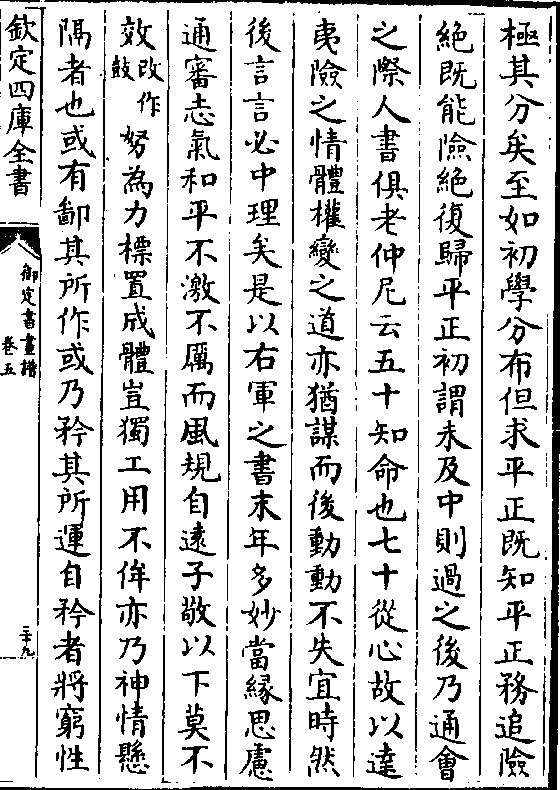 極其分矣至如初學分布但求平正既知平正務追險
絕既能險絕復歸平正初謂未及中則過之後乃通會
之際人書俱老仲尼云五十知命也七十從心故以達
夷險之情體權變之道亦猶謀而後動動不失宜時然
後言言必中理矣是以右軍之書末年多妙當緣思慮
通審志氣和平不激不厲而風規自遠子敬以下莫不
效改作鼓努為力標置成體豈獨工用不侔亦乃神情懸
隔者也或有鄙其所作或乃矜其所運自矜者將窮性
欽定四庫全書
御定書畫譜
卷五
二十九